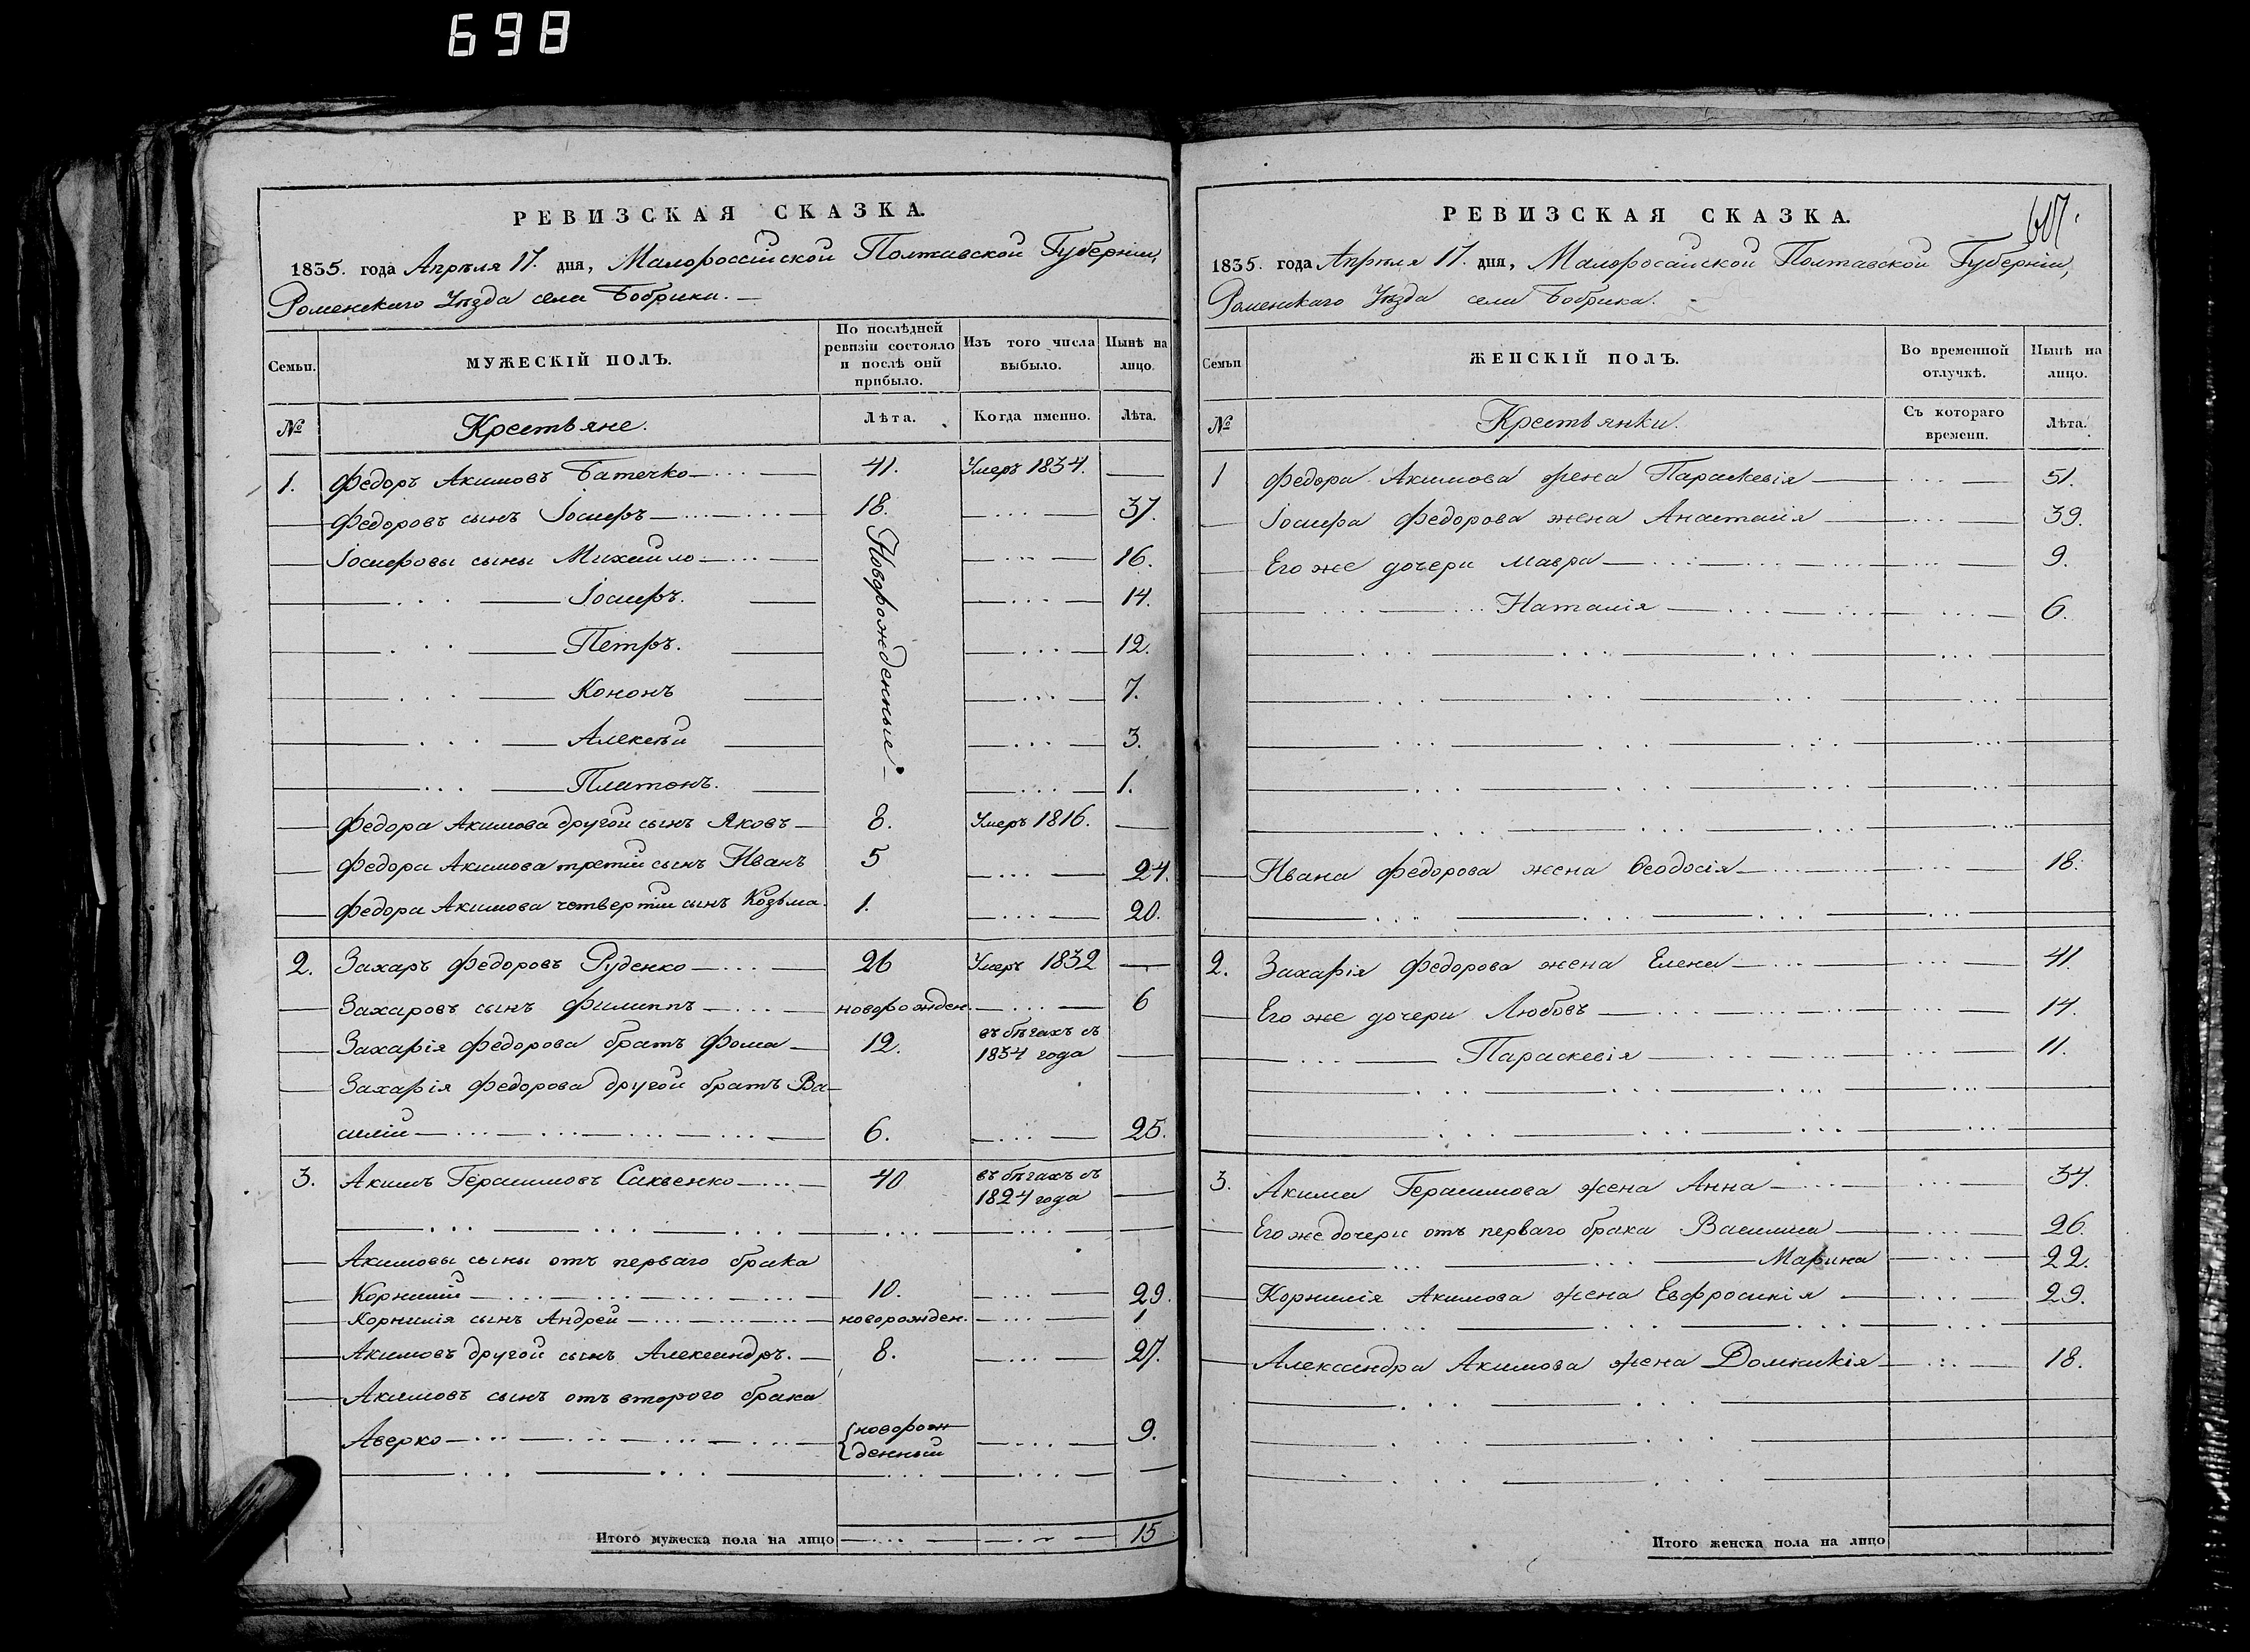 698
РЕВИЗСКАЯ СКАЗКА.
1835. года Апрѣля 17. дня, Малороссійской Полтавской Губерніи,
Роменскаго Уѣзда села Бобрика.
Семьи.
МУЖЕСКІЙ ПОЛЪ.
По послѣдней ревизіи состояло и послѣ оній прибыло.
Изъ того числа выбыло.
Нынѣ на лицо.
№
Крестьяне.
Лѣта.
Когда именно.
Лѣта.
1. Федоръ Акимовъ Батечко 41. Умеръ 1834.
Федоровъ сынъ Іосифъ 18. 37.
Новорожденные
Іосифовы сыны Михайло 16.
Іосифъ. 14.
Петръ. 12.
Кононъ 7.
Алексѣй 3.
Платонъ. 1.
Федора Акимова другой сынъ Яковъ 8. Умеръ 1816.
Федора Акимова третій сынъ Иванъ 5 24.
Федора Акимова четвертій сынъ Козьма. 1. 20.
2. Захаръ Федоровъ Руденко 26 Умеръ 1832
Захаровъ сынъ Филиппъ новорожден. 6
Захарія Федорова братъ Фома 12. въ бѣгахъ съ
1834 года
Захарія Федорова другой братъ Ва-
силій 6. 25.
3. Акимъ Герасимовъ Саквенко 40 въ бѣгахъ съ
1824 года
Акимовы сыны отъ перваго брака
Корнилій 10. 29.
Корнилія сынъ Андрей новорожден. 1
Акимовъ другой сынъ Александръ. 8. 27.
Акимовъ сынъ отъ второго брака
Аверко новорож
денный 9.
Итого мужеска пола на лицо 15
607.
РЕВИЗСКАЯ СКАЗКА.
1835. года Апрѣля 17. дня, Малоросайской Полтавской Губерніи,
Роменскаго Уѣзда села Бобрика.
Семьи
ЖЕНСКІЙ ПОЛЪ.
Во временной отлучкѣ.
Нынѣ на лицо.
№
Крестьянки.
Съ котораго времени.
Лѣта.
1 Федора Акимова жена Параскевія 51.
Іосифа Федорова жена Анастасія 39.
Его же дочери Мавра 9.
Наталія 6.
Ивана Федорова жена Ѳеодосія 18.
2. Захарія Федорова жена Елена 41.
Его же дочери Любовъ 14.
Параскевія 11.
3. Акима Герасимова жена Анна 34.
Его же дочери отъ перваго брака Васили­са 26.
Марина 22.
Корнилія Акимова жена Евфросинія 29.
Александра Акимова жена Домникія 18.
Итого женска пола на лицо